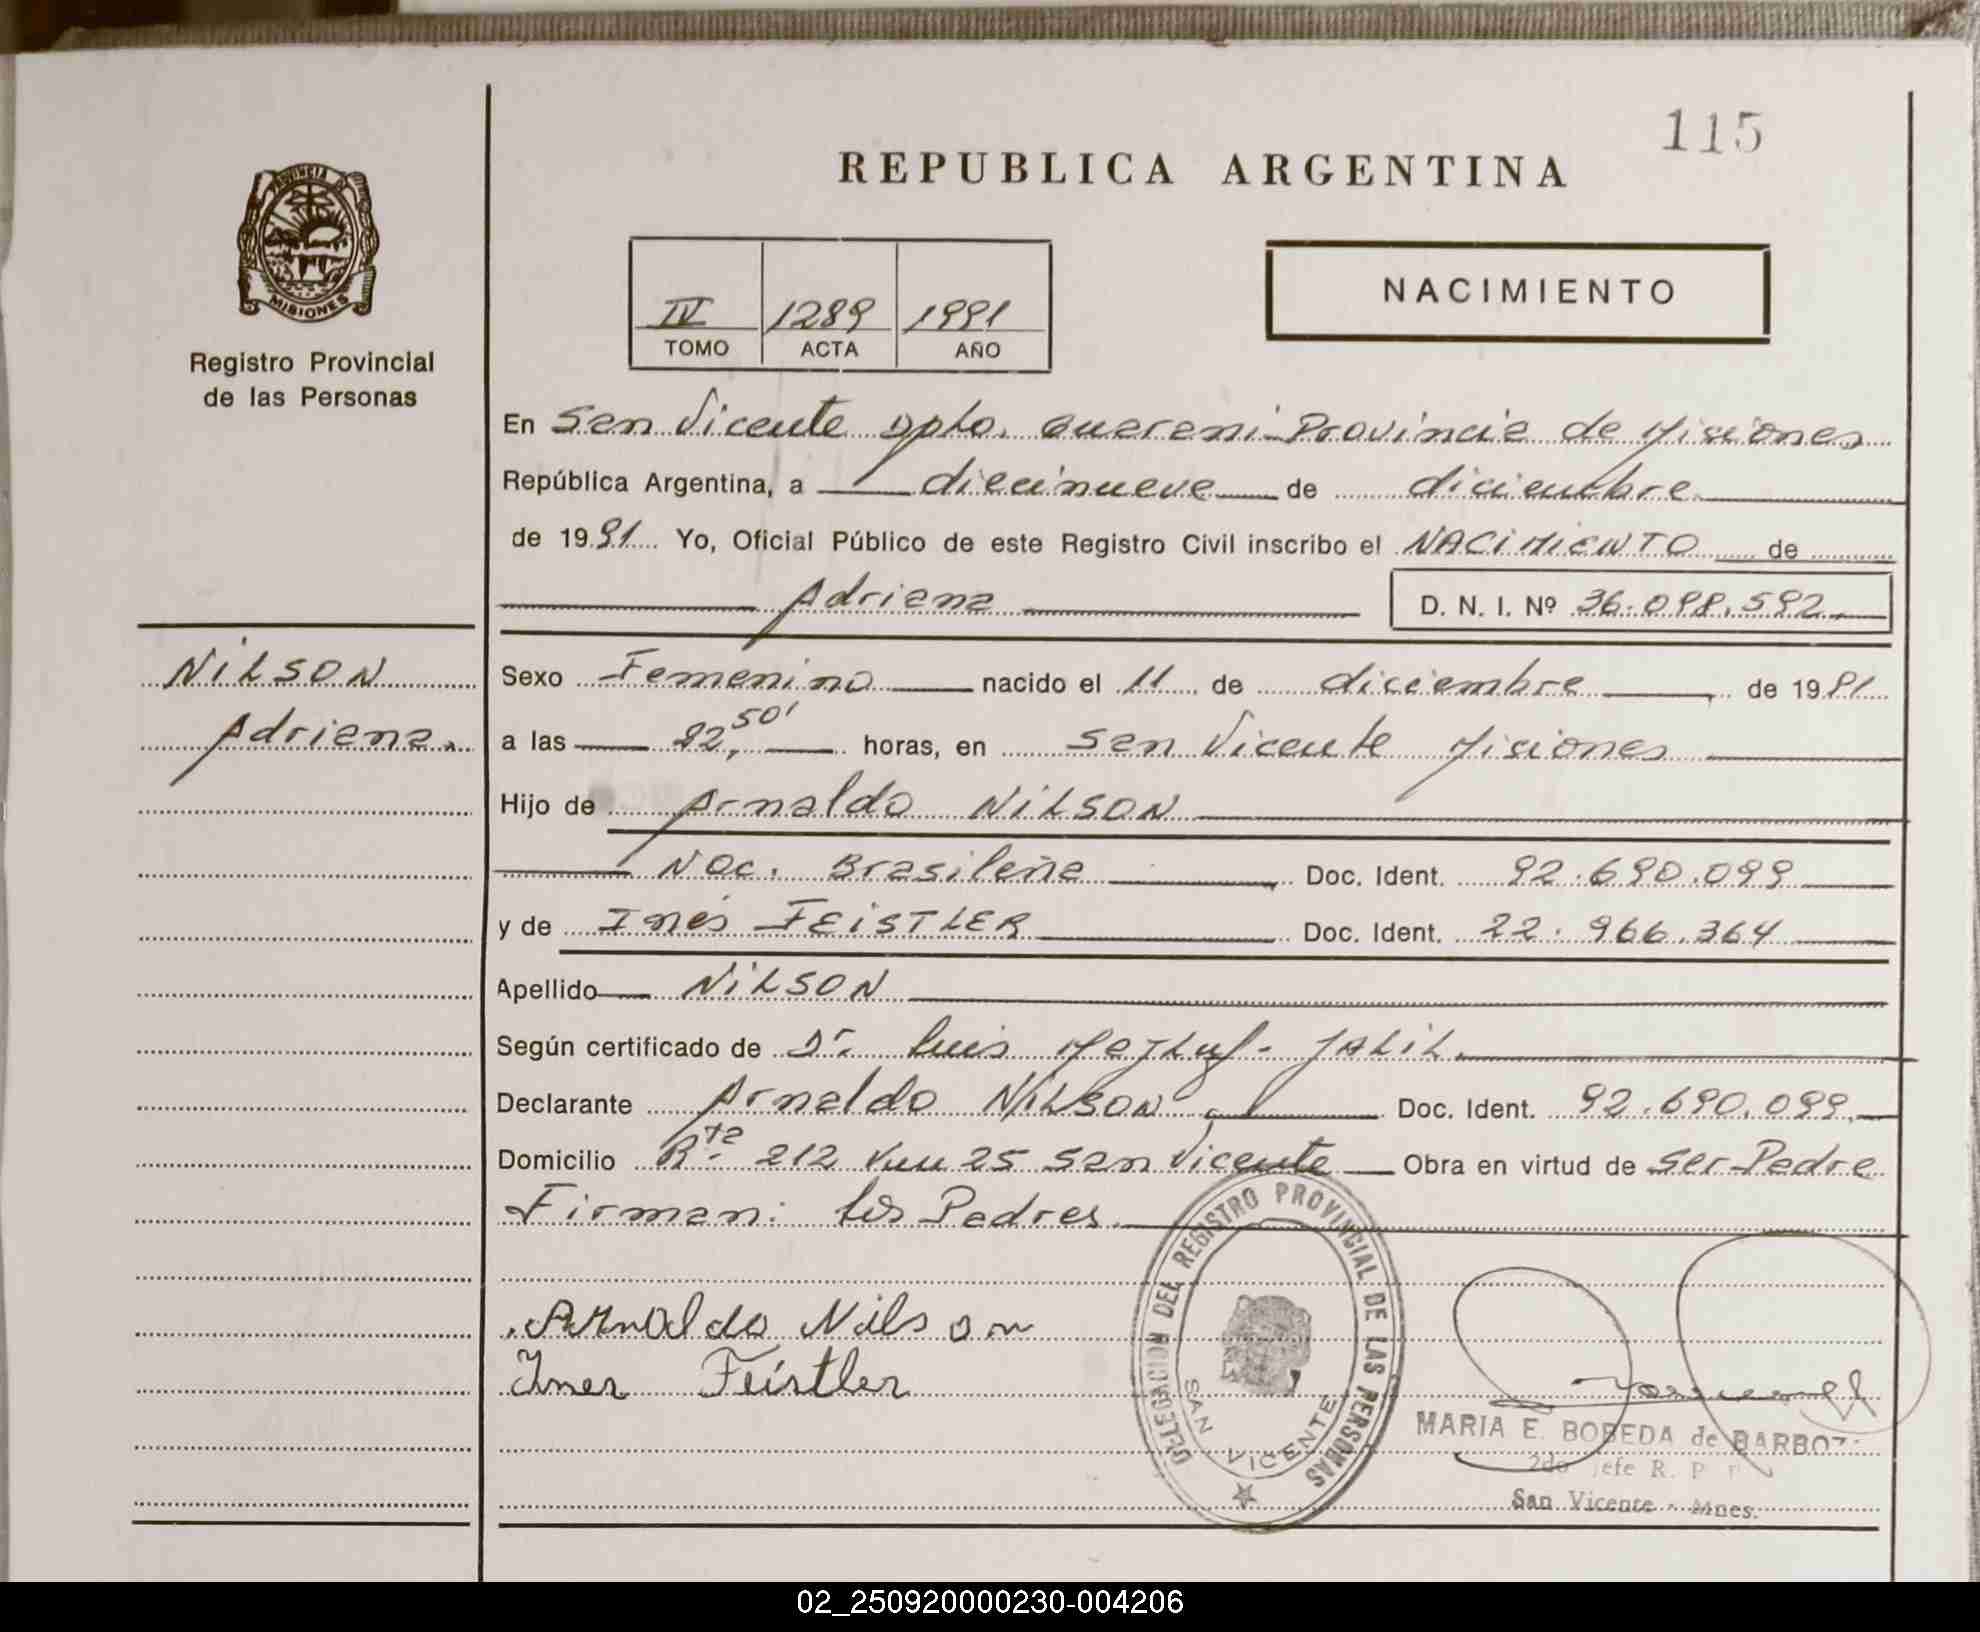 115
REPUBLICA ARGENTINA
PROVINCIA DE
MISIONES
Registro Provincial
de las Personas
IV 1289 1991
TOMO ACTA AÑO
NACIMIENTO
En San Vicente Dpto. Guaraní - Provincia de Misiones
República Argentina, a diecinueve de diciembre
de 1991 Yo, Oficial Público de este Registro Civil inscribo el NACIMIENTO de
Adriana D. N. I. Nº 36.098.592
NILSON
Adriana.
Sexo Femenino nacido el 11 de diciembre de 1991
a las 22,50' horas, en San Vicente Misiones
Hijo de Arnaldo NILSON
Nac. Brasileña Doc. Ident. 92.690.099
y de Inés FEISTLER Doc. Ident. 22.966.364
Apellido NILSON
Según certificado de Dr. Luis JALIL.
Declarante Arnaldo NILSON Doc. Ident. 92.690.099
Domicilio Rta. 212 Km 25 San Vicente Obra en virtud de ser Padre
Firman: los Padres
Arnaldo Nilson
Ines Feistler
DELEGACION DEL REGISTRO PROVINCIAL DE LAS PERSONAS
SAN VICENTE
MARIA E. BOBEDA de BARBOZ
2do Jefe R. P.
San Vicente - Mnes.
02_250920000230-004206